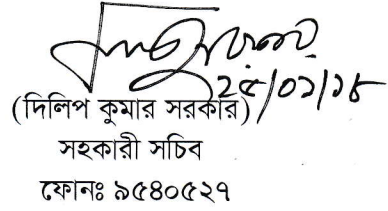 ২৫/০১/১৮
(দিলিপ কুমার সরকার)
সহকারী সচিব
ফোনঃ ৯৫৪০৫২৭